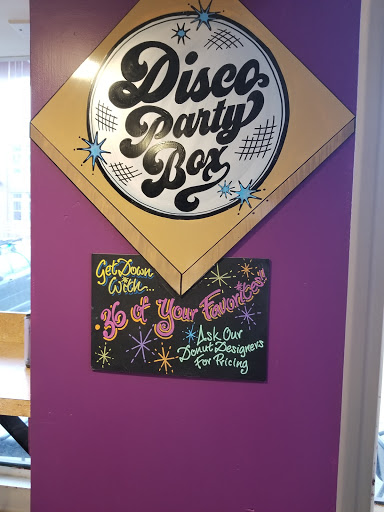 Disco
Party
Box
Get Down
With...
36 of Your Favorites!!
Ask Our
Donut Designers
For Pricing